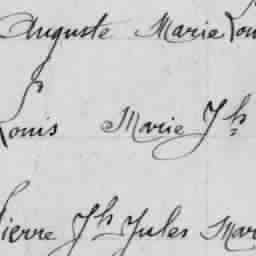 Auguste Marie Lou
Louis Marie Jh
Pierre Jh Jules Mar